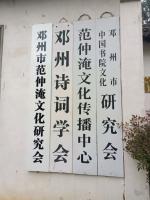 邓州市
中国书院文化
研究会
范仲淹文化传播中心
邓州诗词学会
邓州市范仲淹文化研究会